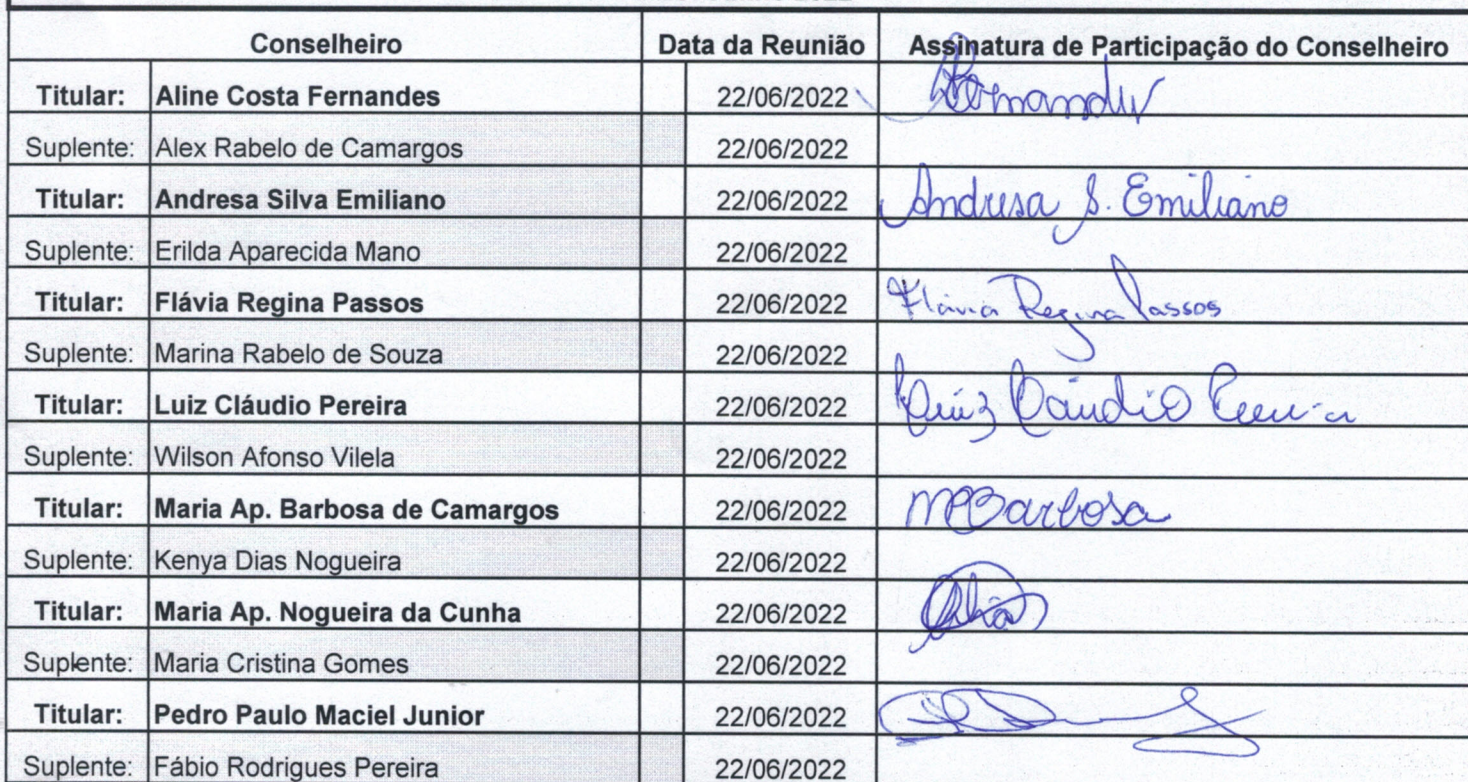 Conselheiro Data da Reunião Assinatura de Participação do Conselheiro
Titular: Aline Costa Fernandes 22/06/2022
Suplente: Alex Rabelo de Camargos 22/06/2022
Titular: Andresa Silva Emiliano 22/06/2022 Andresa S. Emiliano
Suplente: Erilda Aparecida Mano 22/06/2022
Titular: Flávia Regina Passos 22/06/2022 Flávia Regina Passos
Suplente: Marina Rabelo de Souza 22/06/2022
Titular: Luiz Cláudio Pereira 22/06/2022 Luiz Cláudio Pereira
Suplente: Wilson Afonso Vilela 22/06/2022
Titular: Maria Ap. Barbosa de Camargos 22/06/2022 MBarbosa
Suplente: Kenya Dias Nogueira 22/06/2022
Titular: Maria Ap. Nogueira da Cunha 22/06/2022
Suplente: Maria Cristina Gomes 22/06/2022
Titular: Pedro Paulo Maciel Junior 22/06/2022
Suplente: Fábio Rodrigues Pereira 22/06/2022